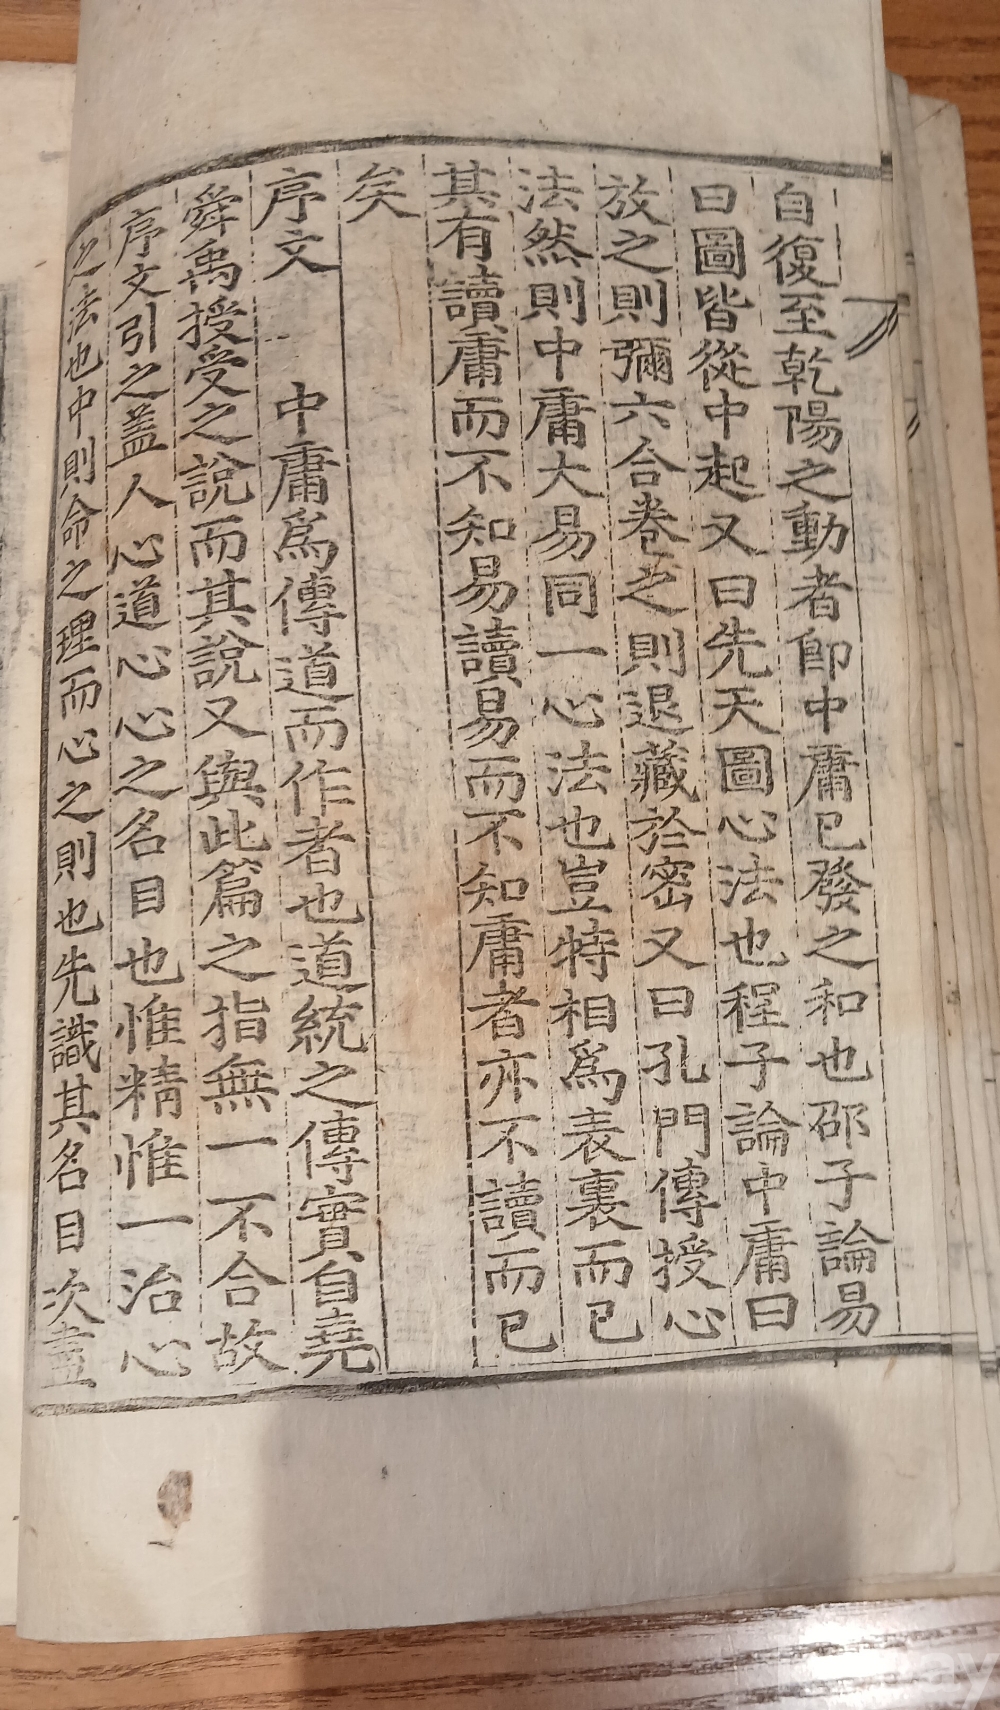 自復至乾陽之動者卽中庸已發之和也邵子論易
曰圖皆從中起又曰先天圖心法也程子論中庸曰
放之則彌六合卷之則退藏於密又曰孔門傳授心
法然則中庸大易同一心法也豈特相爲表裏而已
其有讀庸而不知易讀易而不知庸者亦不讀而已
矣
序文　中庸爲傳道而作者也道統之傳實自堯
舜禹授受之說而其說又與此篇之指無一不合故
序文引之盖人心道心心之名目也惟精惟一治心
之法也中則命之理而心之則也先識其名目次盡